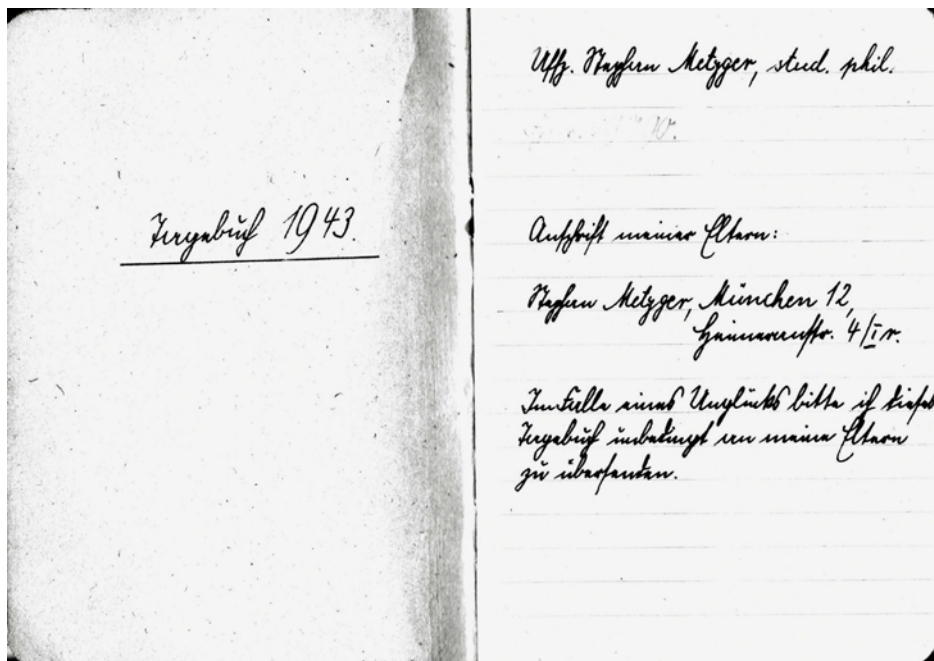 Tagebuch 1943.
Uffz. Stephan Metzger, stud. phil.
Anschrift meiner Eltern:
Stephan Metzger, München 12,
Heimeranstr. 4/I r.
Im Falle eines Unglücks bitte ich dieses
Tagebuch unbedingt an meine Eltern
zu übersenden.